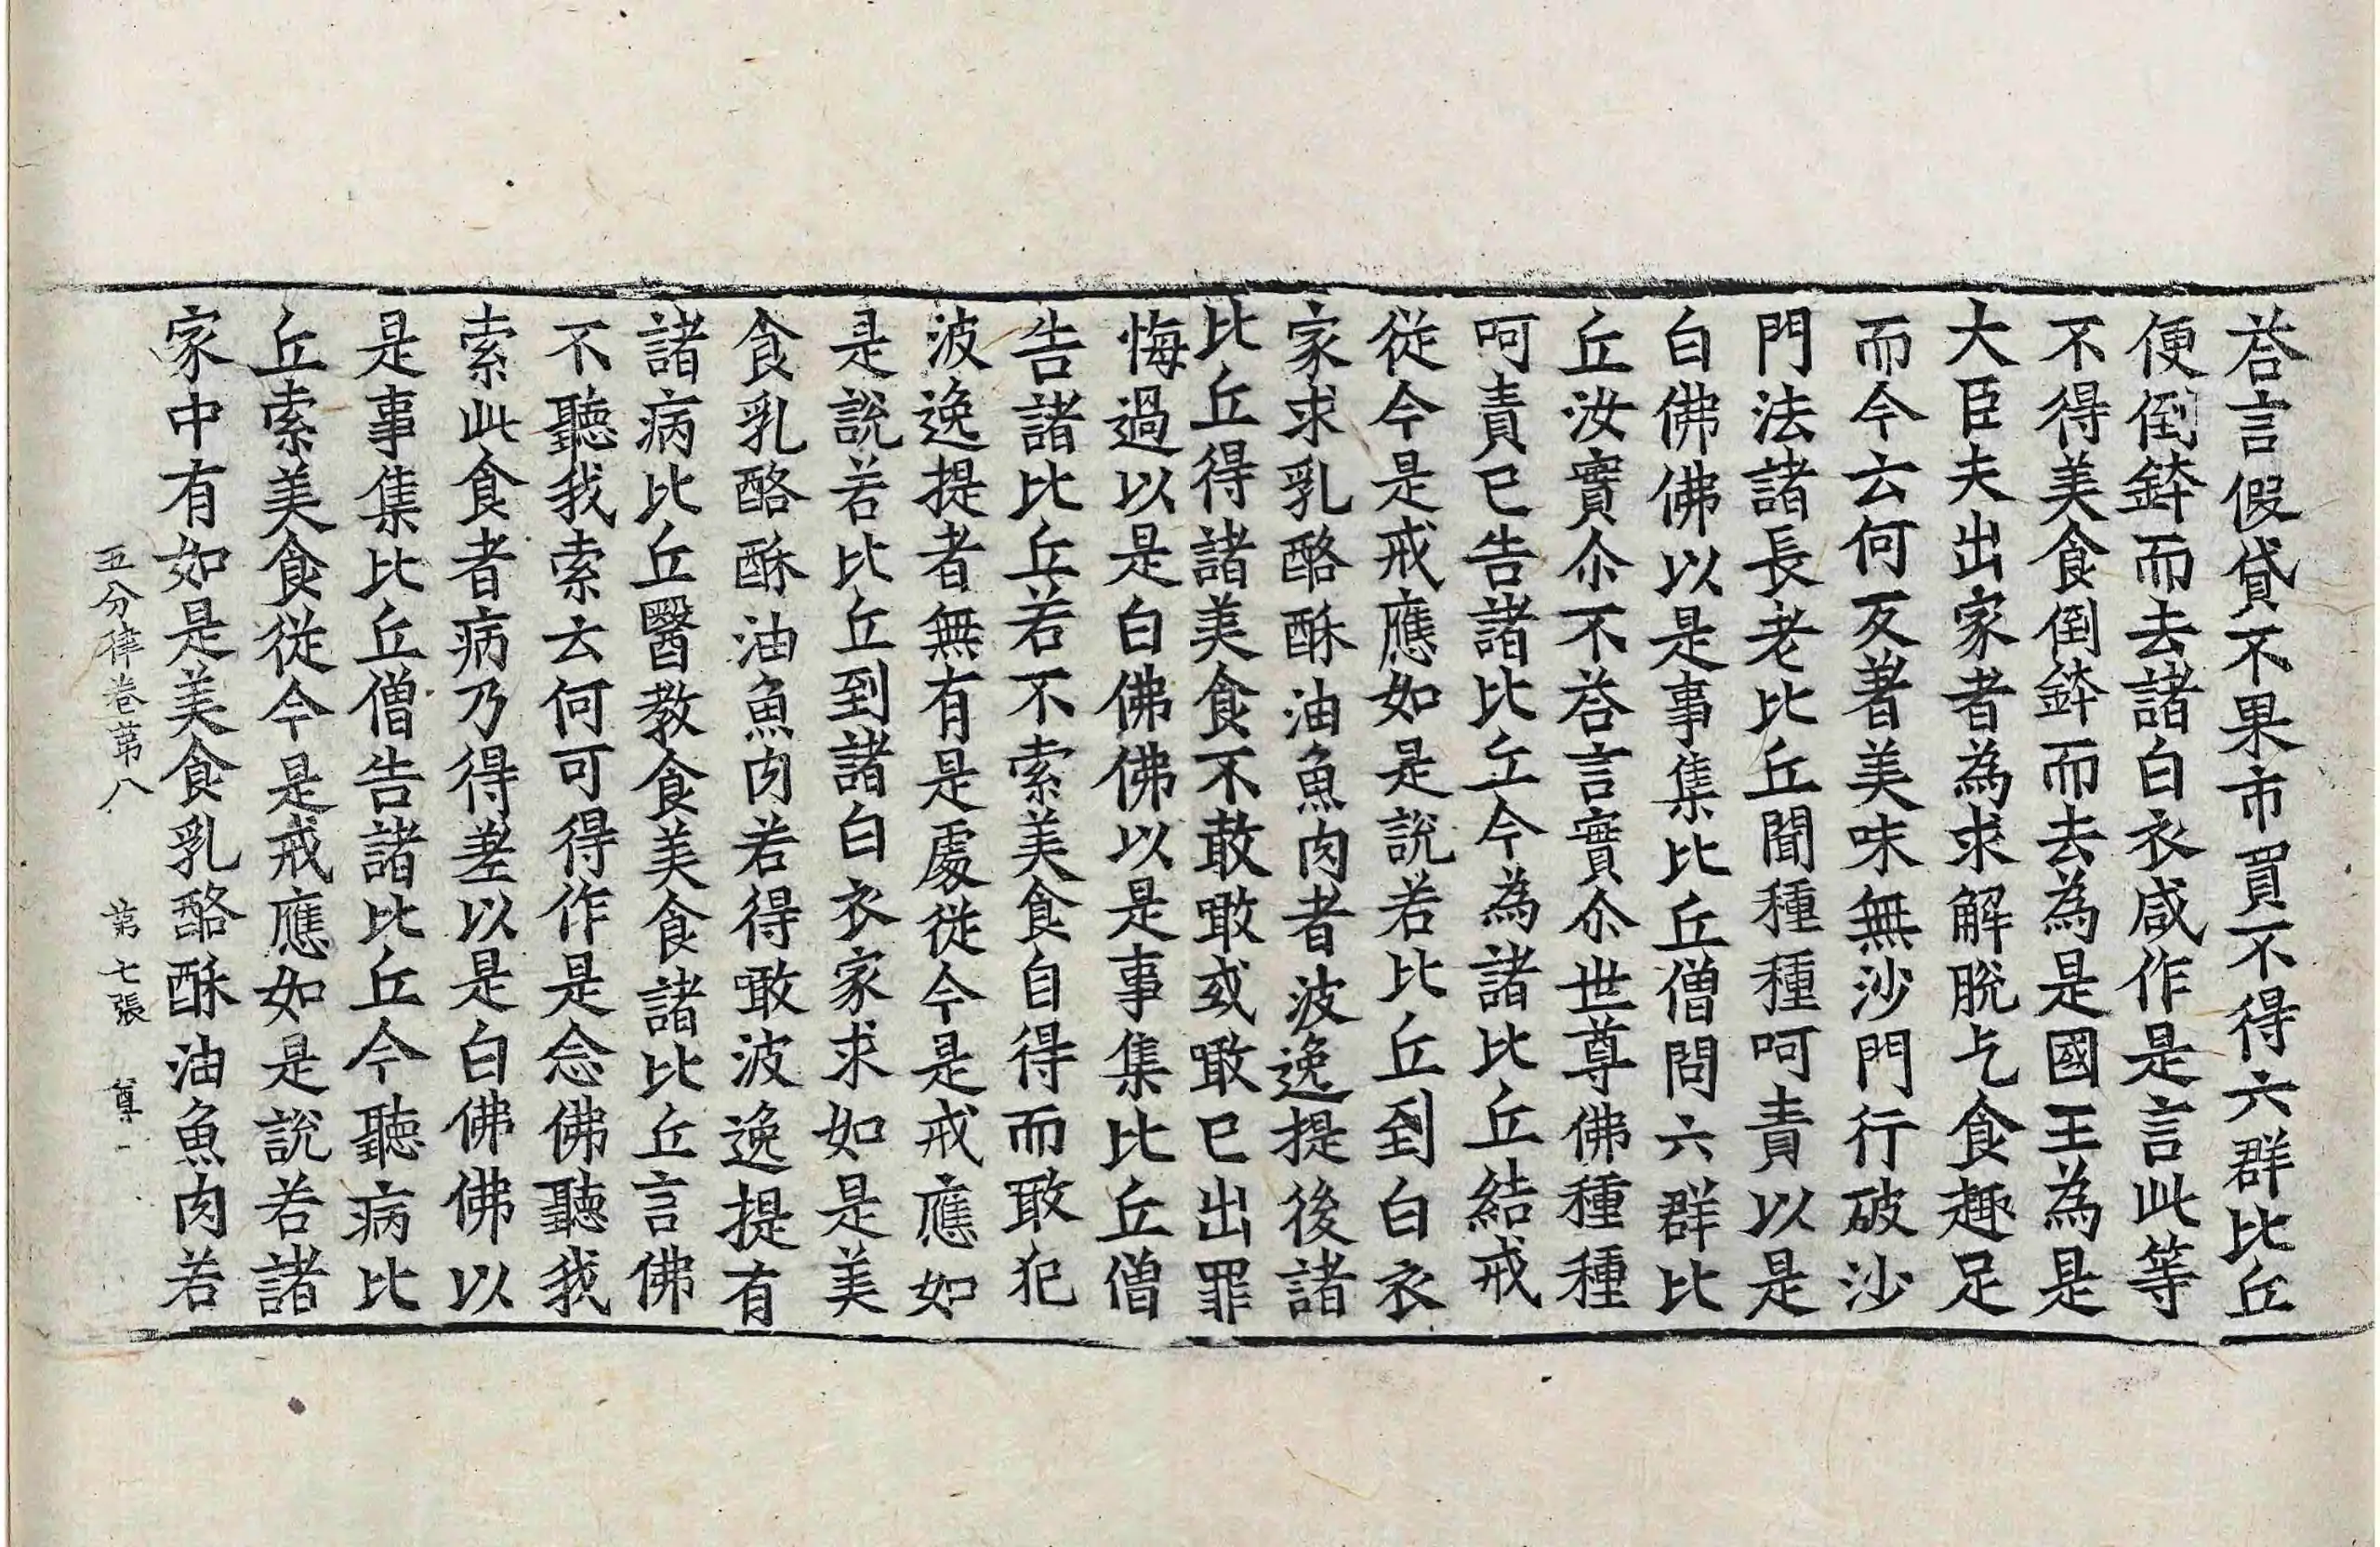 荅言假貸不果市買不得六群比丘
便倒鉢而去諸白衣咸作是言此等
不得美食倒鉢而去為是國王為是
大臣夫出家者為求解脫乞食趣足
而今云何反著美味無沙門行破沙
門法諸長老比丘聞種種呵責以是
白佛佛以是事集比丘僧問六群比
丘汝實尒不荅言實尒世尊佛種種
呵責已告諸比丘今為諸比丘結戒
從今是戒應如是說若比丘到白衣
家求乳酪酥油魚肉者波逸提後諸
比丘得諸美食不敢噉或噉已出罪
悔過以是白佛佛以是事集比丘僧
告諸比丘若不索美食自得而敢犯
波逸提者無有是處從今是戒應如
是說若比丘到諸白衣家求如是美
食乳酪酥油魚肉若得噉波逸提有
諸病比丘醫教食美食諸比丘言佛
不聽我索云何可得作是念佛聽我
索此食者病乃得差以是白佛佛以
是事集比丘僧告諸比丘今聽病比
丘索美食從今是戒應如是說若諸
家中有如是美食乳酪酥油魚肉若
五分律卷第八 第七張 尊